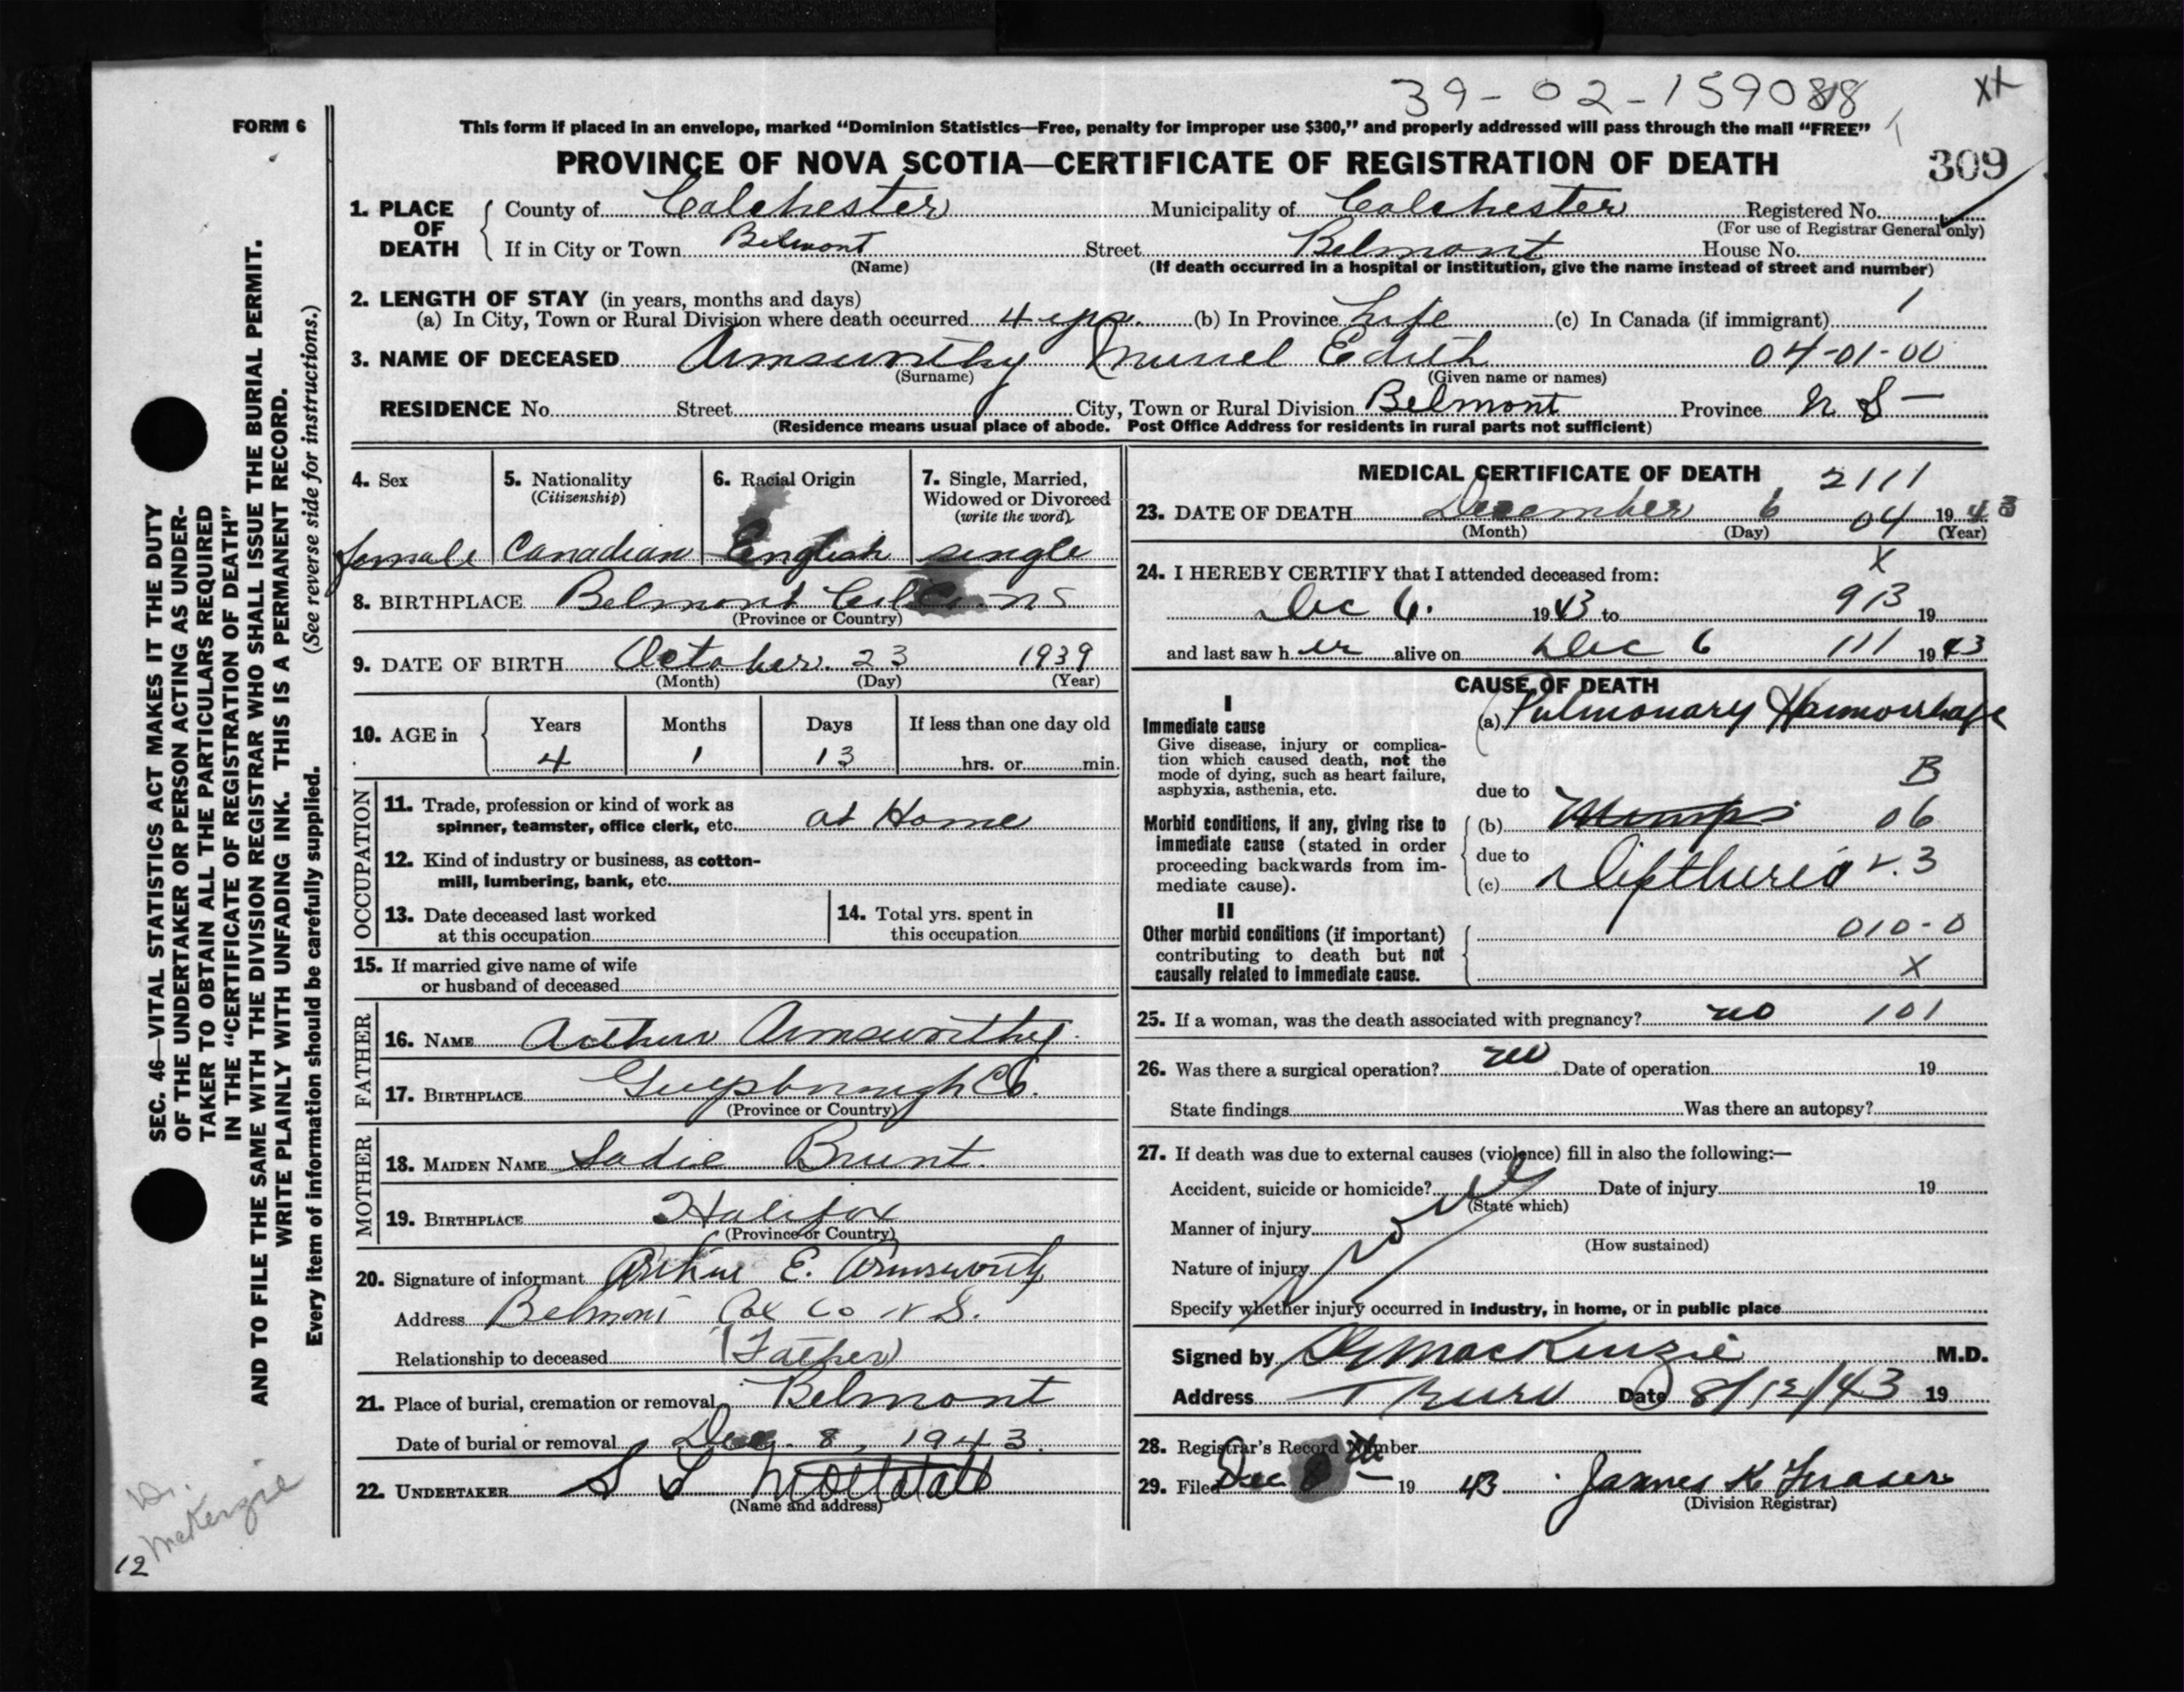 39-02-159088
XX
FORM 6
This form if placed in an envelope, marked “Dominion Statistics—Free, penalty for improper use $300,” and properly addressed will pass through the mail “FREE”
PROVINCE OF NOVA SCOTIA—CERTIFICATE OF REGISTRATION OF DEATH
309
1. PLACE OF DEATH
County of Colchester Municipality of Colchester Registered No.
(For use of Registrar General only)
If in City or Town Belmont Street Belmont House No.
(Name) (If death occurred in a hospital or institution, give the name instead of street and number)
2. LENGTH OF STAY (in years, months and days)
(a) In City, Town or Rural Division where death occurred 4 yrs. (b) In Province Life (c) In Canada (if immigrant) 1
3. NAME OF DECEASED Armsworthy Muriel Edith 04-01-00
(Surname) (Given name or names)
RESIDENCE No. Street City, Town or Rural Division Belmont Province N S
(Residence means usual place of abode. Post Office Address for residents in rural parts not sufficient)
4. Sex 5. Nationality (Citizenship) 6. Racial Origin 7. Single, Married, Widowed or Divorced (write the word)
female Canadian English single
8. BIRTHPLACE Belmont Col Co NS
(Province or Country)
9. DATE OF BIRTH October 23 1939
(Month) (Day) (Year)
10. AGE in Years Months Days If less than one day old
4 1 13 hrs. or min.
OCCUPATION
11. Trade, profession or kind of work as
spinner, teamster, office clerk, etc. at Home
12. Kind of industry or business, as cotton-
mill, lumbering, bank, etc.
13. Date deceased last worked
at this occupation
14. Total yrs. spent in
this occupation
15. If married give name of wife
or husband of deceased
FATHER
16. NAME Arthur Armsworthy
17. BIRTHPLACE Guysborough Co.
(Province or Country)
MOTHER
18. MAIDEN NAME Sadie Brunt.
19. BIRTHPLACE Halifax
(Province or Country)
20. Signature of informant Arthur E. Armsworthy
Address Belmont Col Co N S.
Relationship to deceased (Father)
21. Place of burial, cremation or removal Belmont
Date of burial or removal Dec. 8, 1943.
22. UNDERTAKER S L
(Name and address)
MEDICAL CERTIFICATE OF DEATH 2111
23. DATE OF DEATH December 6 04 1943
(Month) (Day) (Year)
X
24. I HEREBY CERTIFY that I attended deceased from:
Dec 6. 1943 to 913 19
and last saw her alive on Dec 6 111 1943
CAUSE OF DEATH
I
Immediate cause (a) Pulmonary Hamorrhage
Give disease, injury or complica-
tion which caused death, not the
mode of dying, such as heart failure,
asphyxia, asthenia, etc.
B
due to
Morbid conditions, if any, giving rise to
immediate cause (stated in order
proceeding backwards from im-
mediate cause).
(b) Mumps 06
due to
(c) Diptheria v.3
II
Other morbid conditions (if important)
contributing to death but not
causally related to immediate cause.
010-0
X
25. If a woman, was the death associated with pregnancy? no 101
26. Was there a surgical operation? no Date of operation 19
State findings Was there an autopsy?
27. If death was due to external causes (violence) fill in also the following:—
Accident, suicide or homicide? Date of injury 19
(State which)
Manner of injury
(How sustained)
Nature of injury
Specify whether injury occurred in industry, in home, or in public place
Signed by MacKenzie M.D.
Address Truro Date 8/12/43 19
28. Registrar's Record Number
29. Filed Dec 8th 19 43 James K Fraser
(Division Registrar)
SEC. 46—VITAL STATISTICS ACT MAKES IT THE DUTY
OF THE UNDERTAKER OR PERSON ACTING AS UNDER-
TAKER TO OBTAIN ALL THE PARTICULARS REQUIRED
IN THE “CERTIFICATE OF REGISTRATION OF DEATH”
AND TO FILE THE SAME WITH THE DIVISION REGISTRAR WHO SHALL ISSUE THE BURIAL PERMIT.
WRITE PLAINLY WITH UNFADING INK. THIS IS A PERMANENT RECORD.
Every item of information should be carefully supplied. (See reverse side for instructions.)
Dr.
McKenzie
12